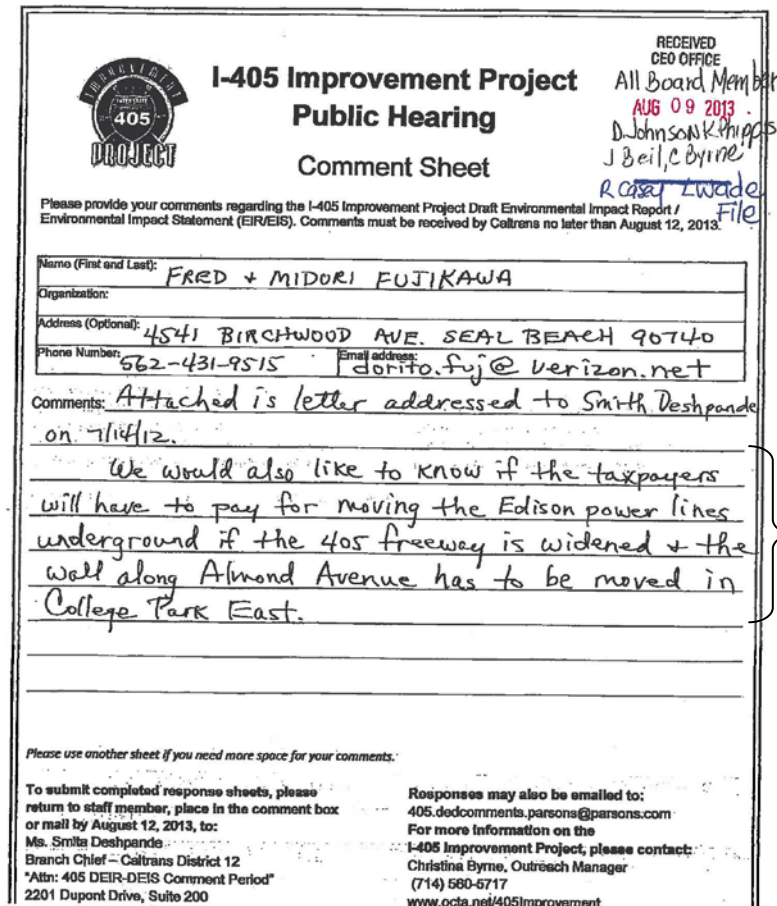 IMPROVEMENT
INTERSTATE
405
PROJECT
I-405 Improvement Project
Public Hearing
Comment Sheet
RECEIVED
CEO OFFICE
All Board Member
AUG 09 2013
D. Johnson K. Phipps
J Beil, C Byrne
R Casey L Wade
File
Please provide your comments regarding the I-405 Improvement Project Draft Environmental Impact Report /
Environmental Impact Statement (EIR/EIS). Comments must be received by Caltrans no later than August 12, 2013.
Name (First and Last): FRED + MIDORI FUJIKAWA
Organization:
Address (Optional): 4541 BIRCHWOOD AVE. SEAL BEACH 90740
Phone Number: 562-431-9515 Email address: dorito.fuj@verizon.net
Comments: Attached is letter addressed to Smith Deshpande
on 7/14/12.
We would also like to know if the taxpayers
will have to pay for moving the Edison power lines
underground if the 405 freeway is widened + the
wall along Almond Avenue has to be moved in
College Park East.
Please use another sheet if you need more space for your comments.
To submit completed response sheets, please
return to staff member, place in the comment box
or mail by August 12, 2013, to:
Ms. Smita Deshpande
Branch Chief – Caltrans District 12
"Attn: 405 DEIR-DEIS Comment Period"
2201 Dupont Drive, Suite 200
Responses may also be emailed to:
405.dedcomments.parsons@parsons.com
For more information on the
I-405 Improvement Project, please contact:
Christina Byrne, Outreach Manager
(714) 560-5717
www.octa.net/405improvement